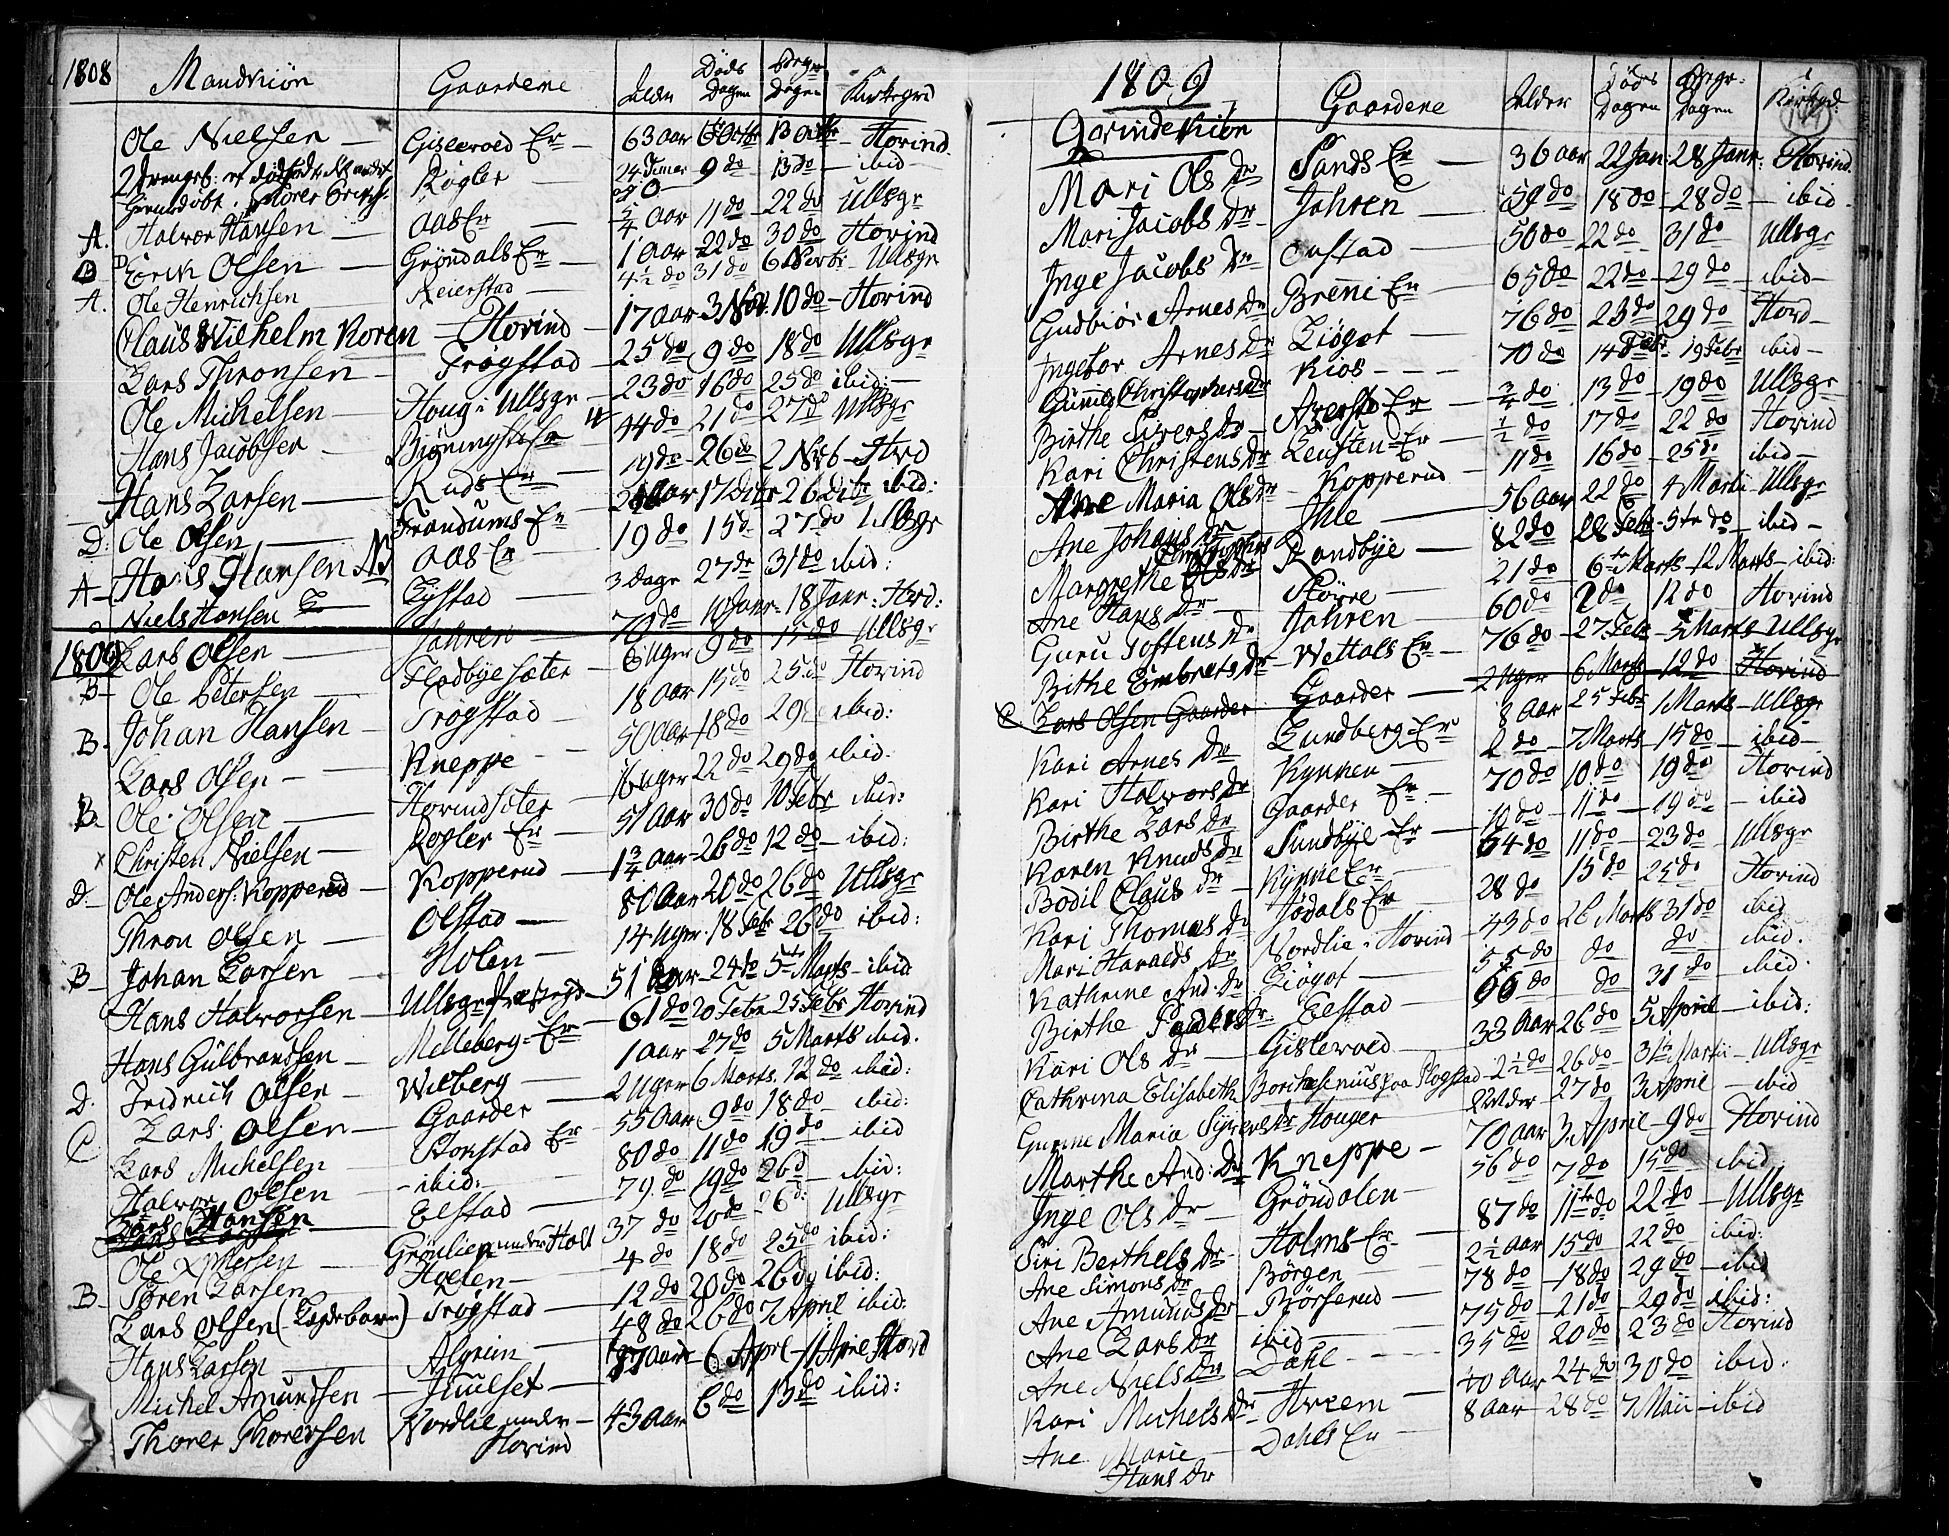 1808 Mandkiön Gaardene Alder Døds Dagen Begr Dagen Kirkegrd
Ole Nielsen Gislevold Er 63 Aar 13 Octbr Hovind
Røgler 24 Timer 9 do 13 do ibid
A. Halvor Hansen Aas Er 5/4 Aar 11 do 22 do Ullsgr
B Erich Olsen Gröndals Er 1 Aar 22 do 30 do Hovind
A. Ole Henrichsen Reierstad 4½ do 31 do 6 Ullsgr
Claus Wilhelm Koren Hovind 17 Aar 3 Nov: 10 do Hovind
Lars Thronsen Trøgstad 25 do 9 do 18 do Ullsgr
Ole Michelsen Houg i Ullsgr 23 do 16 do 25 do ibid:
Hans Jacobsen 44 do 21 do 27 do Ullsgr
Hans Larsen Ruds Er 19 do 26 do 2 Hrd
D: Ole Olsen Trandums Er 17 26 ibid:
A Hans Hansen Aas Er 19 do 15 d 27 do Ullsgr
Niels Hansen Lystad 3 Dage 27 do 31 do ibid:
1809 Lars Olsen Jahren 70 do 10 Janr: 18 Janr: Hovd:
B Ole Petersen Fladbye sæter 6 Uger 9 do 15 do Ullsgr
B. Johan Hansen Trøgstad 18 Aar 15 do 25 do Hovind
Lars Olsen Kneppe 50 Aar 18 do 29 ibid:
B. Ole Olsen Hovindsæter 16 Uger 22 do 29 do ibid:
x Christen Nielsen Rogler Er 51 Aar 30 do 10 Febr ibid:
D. Ole Anders: Kopperud Kopperud 1¾ Aar 26 do 12 do ibid:
Thron Olsen Olstad 80 Aar 20 do 26 do Ullsgr
B Johan Larsen Holen 14 Uger 18 Febr 26 do ibid:
Hans Halvorsen Ullsgr Præstegrd 51 Aar 24 do 5 Marts ibid
Hans Gulbrandsen Melleberg Er 61 do 20 Febr 25 Febr Hovind
D. Fridrich Olsen Wilberg 1 Aar 27 do 5 Marts ibid.
C Lars Olsen Gaarder 2 Uger 6 Marts 12 do ibid:
Lars Michelsen Er 55 Aar 9 do 18 do ibid:
Halvor Olsen ibid: 80 do 11 do 19 do ibid
Lars Hansen Elstad 79 do 19 do 26 d ibid:
Ole Grönlien under Holl 37 do 20 do 26 d: Ullsgr
B Søren Larsen Holen 4 do 18 do 25 do ibid:
Lars Olsen (Lægdebarn) Trøgstad 12 do 20 do 26 do ibid:
Hans Larsen Algrim 48 do 26 do 7 April ibid:
Michel Amundsen Juulset 6 Apr 11 Apr Hovd
Thorer Thorersen Nordlie under Hovind 43 Aar 6 do 13 do ibid:
1809
Qvindekiön Gaardene Alder Døds Dagen Begr: Dagen Kirkegd:
Mari Ols Dr Sands Er 36 Aar 22 Jan: 28 Janr: Hovind
Mari Jacobs Dr Jahren 59 do 18 do 28 do ibid
Inge Jacobs Dr 50 do 22 do 31 do Ullsgr
Gudbiör Arnes Dr Brenni Er 65 do 22 do 29 do ibid
Ingebor Arnes Dr Liøgot 76 do 23 do 29 do Hovd
Gunild Christophers Dr Kios 70 do 14 Febr 19 Febr ibid
Birthe Sivers Dr Er ¾ do 13 do 19 do Ullsgr
Kari Christens Dr Leusten Er ½ do 17 do 22 do Hovind
Ane Maria Ols Dr Kopperud 11 do 16 do 25 do ibid
Ane Johans Dr Ihle 56 Aar 22 do 4 Martii Ullsgr
Margrethe Christophers Dr Randbye 82 do 28 Febr 5te do ibid
Ane Hans Dr Større 21 do 6te Marts 12 Marts ibid:
Guru Tostens Dr Jahren 60 do 2 do 12 do Hovind
Birthe Embrets Dr Wettals Er 76 do 27 Febr 5 Marts Ullsgr
C Lars Olsen Gaarder Gaarder 2 Uger 6 Marts 12 do Hovind
Kari Arnes Dr Lundberg Er 8 Aar 25 Febr 1 Marts Ullsgr
Kari Halvors Dr Kynnen 2 do 7 Marts 15 do ibid
Birthe Lars Dr Gaarder Er 70 do 10 do 19 do Hovind
Karen Knuds Dr Sundbye Er 10 do 11 do 19 do ibid
Bodil Claus Dr Kynne Er 64 do 11 do 23 do Ullsgr
Kari Thomas Dr Jodals Er 28 do 15 do 25 do Hovind
Mari Haralds Dr Nordlie i Hovind 43 do 26 Marts 31 do ibid
Kathrine And: Dr Liøgot 55 do do do ibid.
Birthe Dr. Elstad 66 do do 31 do ibid:
Kari Ols Dr Gislevold 33 Aar 26 do 5 April ibid:
Cathrina Elisabeth Borchsenius paa Rogstad 2½ do 26 do 31te Martii Ullsgr
Gurine Maria Syvers Dr Houger 27 do 3 April ibid
Marthe And: Dr Kneppe 70 Aar 3 April 9 do Hovind
Inge Ols Dr Gröndalen 56 do 7 do 15 do ibid
Siri Berthels Dr Holms Er 87 do 11te do 22 do Ullsgr
Ane Simons Dr Børgen 2½ Aar 15 do 22 do ibid:
Ane Amunds Dr Børserud 78 do 18 do 29 do ibid
Ane Lars Dr ibid 75 do 21 do 29 do ibid:
Ane Niels Dr Dahl 35 do 20 do 23 do Hovind
Kari Michels Dr Hreem 40 Aar 24 do 30 do ibid:
Ane Marie Hans Dr Dahls Er 8 Aar 28 do 7 Maii ibid